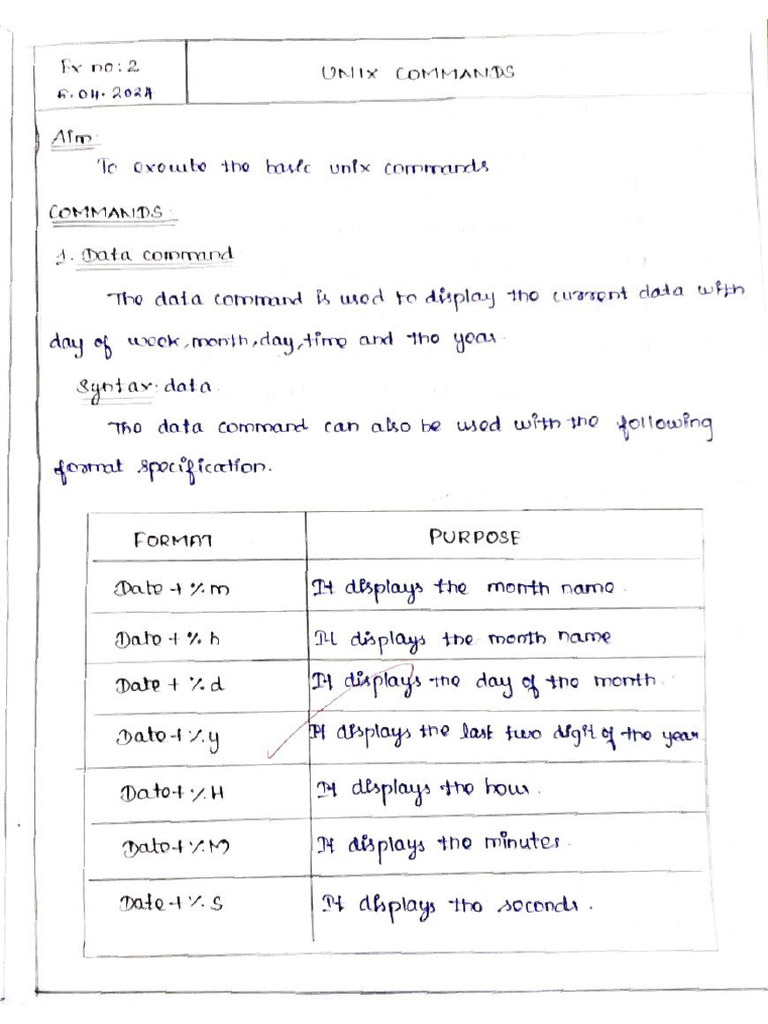 Ex no: 2
5.04.2024
UNIX COMMANDS
Aim:
To execute the basic unix commands
COMMANDS:
1. Data command
The data command is used to display the current data with
day of week, month, day, time and the year.
Syntax: data
The data command can also be used with the following
format specification.
FORMAT PURPOSE
Date + %m It displays the month name.
Date + % h It displays the month name
Date + %d It displays the day of the month.
Date + %y It displays the last two digit of the year
Date + %H It displays the hour.
Date + %M It displays the minutes.
Date + %S It displays the seconds.